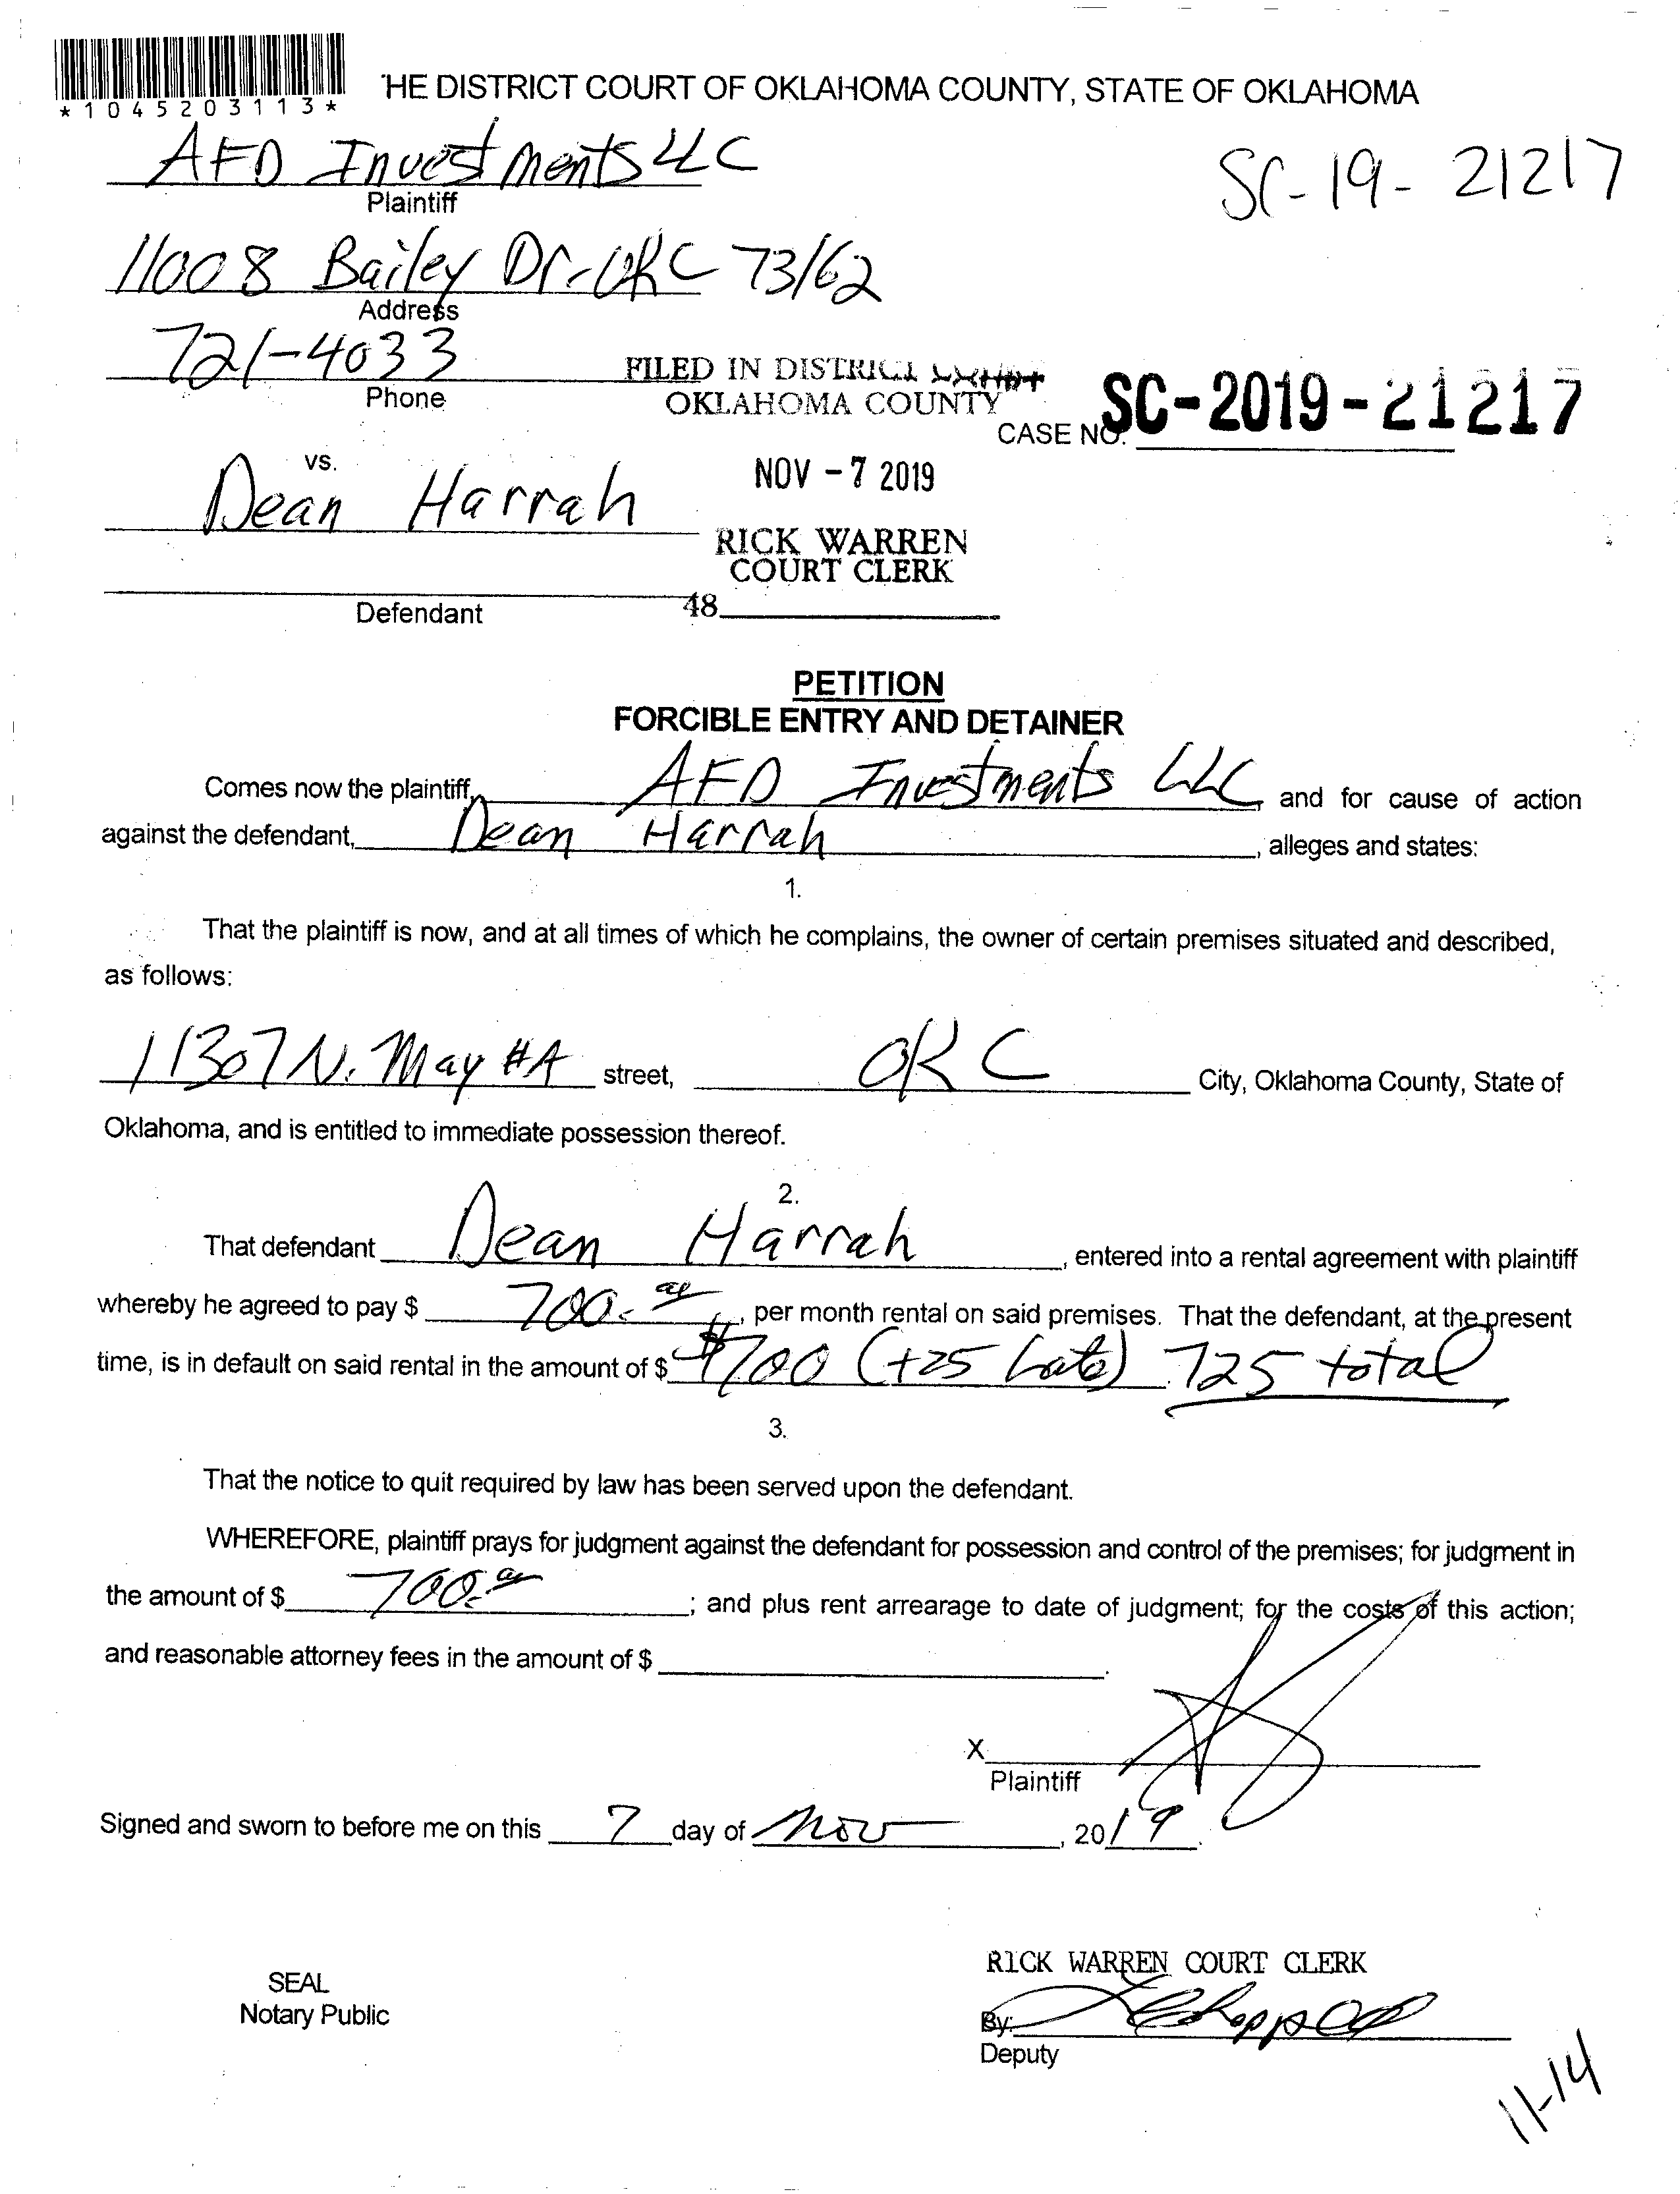 *1045203113*
HE DISTRICT COURT OF OKLAHOMA COUNTY, STATE OF OKLAHOMA
AFD Investments LLC
Plaintiff
SC-19-21217
11008 Bailey Dr. OKC 73162
Address
721-4033
Phone
FILED IN DISTRICT COURT
OKLAHOMA COUNTY
CASE NO. SC-2019-21217
vs.
NOV -7 2019
Dean Harrah
RICK WARREN
COURT CLERK
Defendant
48
PETITION
FORCIBLE ENTRY AND DETAINER
Comes now the plaintiff, AFD Investments LLC, and for cause of action
against the defendant, Dean Harrah, alleges and states:
1.
That the plaintiff is now, and at all times of which he complains, the owner of certain premises situated and described,
as follows:
11307 N. May #A street, OKC City, Oklahoma County, State of
Oklahoma, and is entitled to immediate possession thereof.
2.
That defendant Dean Harrah, entered into a rental agreement with plaintiff
whereby he agreed to pay $ 700.00, per month rental on said premises. That the defendant, at the present
time, is in default on said rental in the amount of $ $700 (+25 Late) 725 total
3.
That the notice to quit required by law has been served upon the defendant.
WHEREFORE, plaintiff prays for judgment against the defendant for possession and control of the premises; for judgment in
the amount of $ 700.00; and plus rent arrearage to date of judgment; for the costs of this action;
and reasonable attorney fees in the amount of $ .
X
Plaintiff
Signed and sworn to before me on this 7 day of Nov, 2019.
RICK WARREN COURT CLERK
SEAL
Notary Public
By:
Deputy
11-14